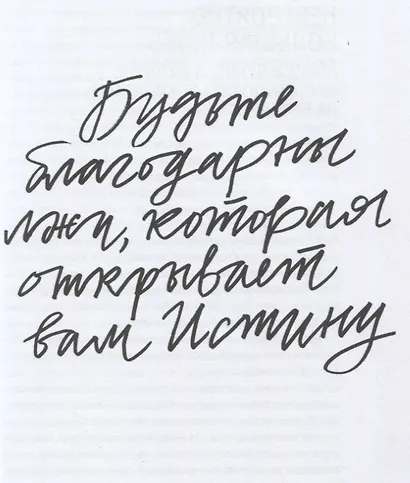 Будьте
благодарны
лжи, которая
открывает
вам Истину